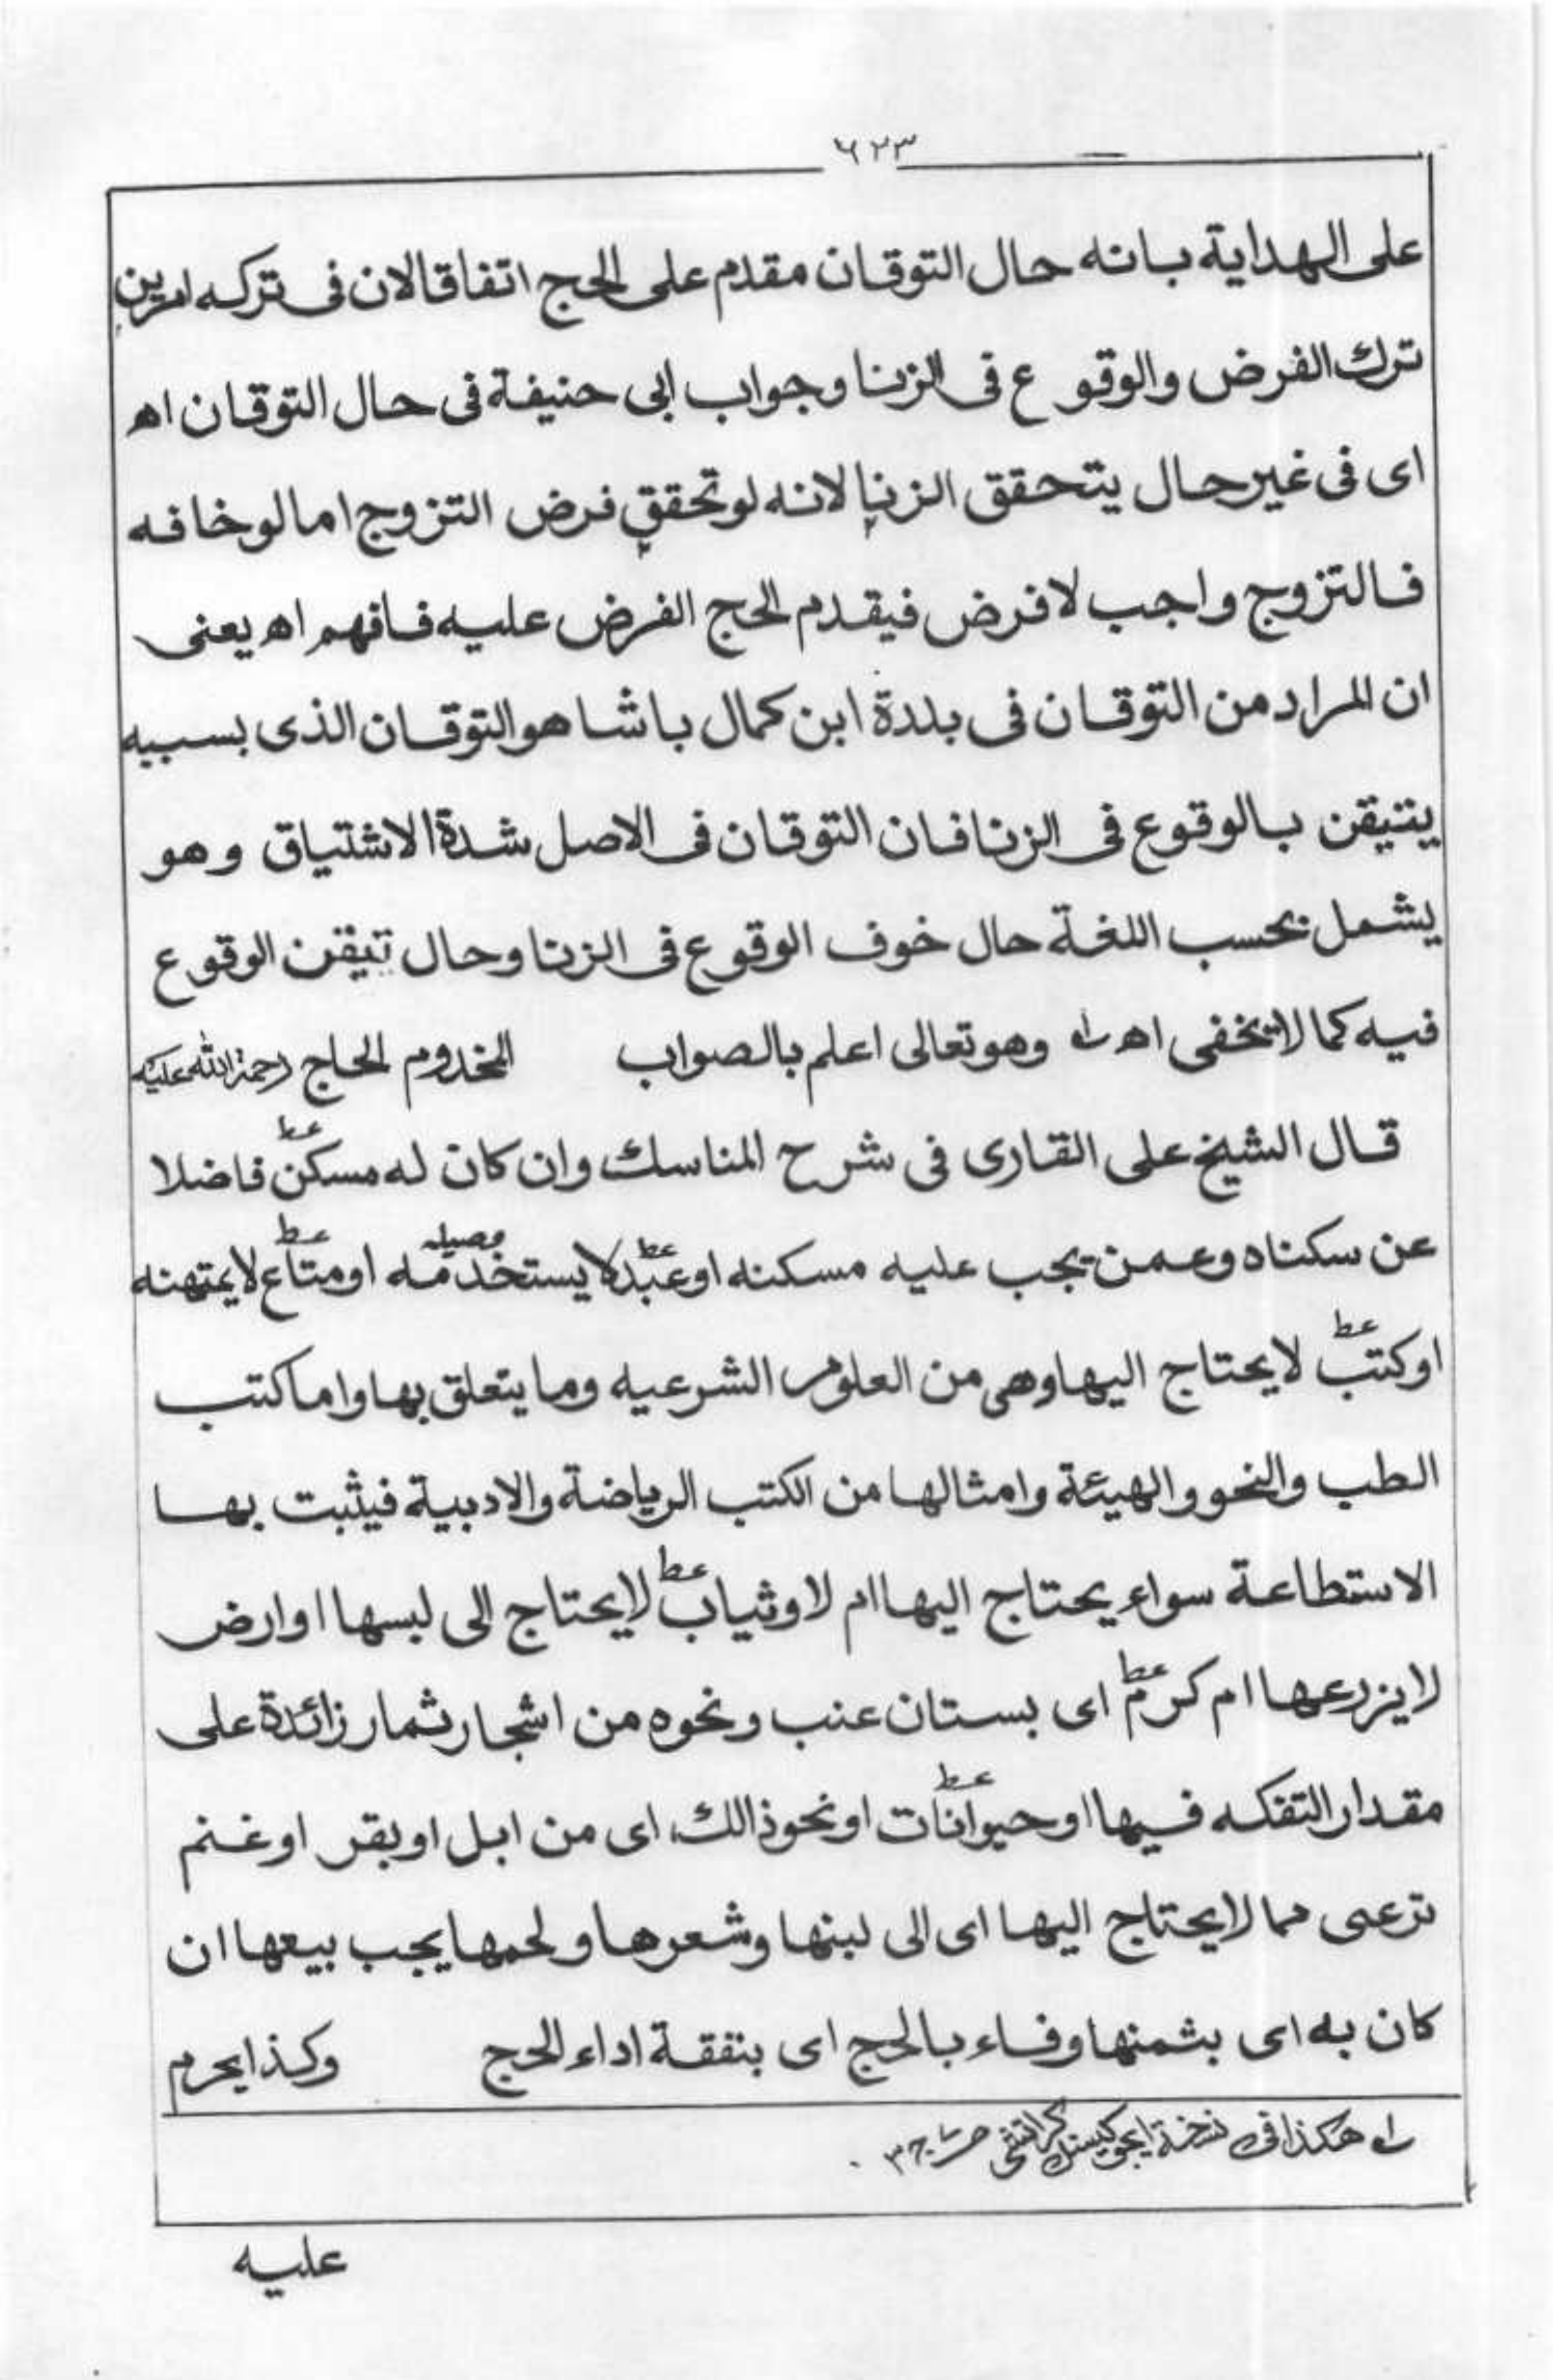 ٦٢٣
على الهداية بانه حال التوقان مقدم على الحج اتفاقا لان فى تركه امرين
ترك الفرض والوقوع فى الزنا وجواب ابى حنيفة فى حال التوقان اھ
اى فى غير حال يتحقق الزنا لانه لو تحقق فرض التزوج اما لو خافه
فالتزوج واجب لا فرض فيقدم الحج الفرض عليه فافهم اھ يعنى
ان المراد من التوقان فى بلدة ابن كمال باشا هو التوقان الذى بسببه
يتيقن بالوقوع فى الزنا فان التوقان فى الاصل شدة الاشتياق وهو
يشمل بحسب اللغة حال خوف الوقوع فى الزنا وحال تيقن الوقوع
فيه كما لا تخفى اھ لہ وهو تعالى اعلم بالصواب المخدوم الحاج رحمة الله عليه
قال الشيخ على القارى فى شرح المناسك وان كان له مسكن عط فاضلا
عن سكناه وعمن تجب عليه مسكنه او عبد عط لا يستخدمه او متاع عط لا يمتهنه
او كتب عط لا يحتاج اليها وهى من العلوم الشرعيه وما يتعلق بها واما كتب
الطب والنحو والهيئة وامثالها من الكتب الرياضة والادبية فيثبت بها
الاستطاعة سواء يحتاج اليها ام لا وثياب عط لا يحتاج الى لبسها او ارض
لا يزرعها ام كرم عط اى بستان عنب ونحوه من اشجار ثمار زائدة على
مقدار التفكه فيها او حيوانات عط او نحو ذالك اى من ابل او بقر او غنم
ترعى مما لا يحتاج اليها اى الى لبنها وشعرها ولحمها يجب بيعها ان
كان به اى بثمنها وفاء بالحج اى بنفقة اداء الحج وكذا يحرم
لہ هكذا فى نسخة ايجوكيشنل كراتشى ج ٣
عليه